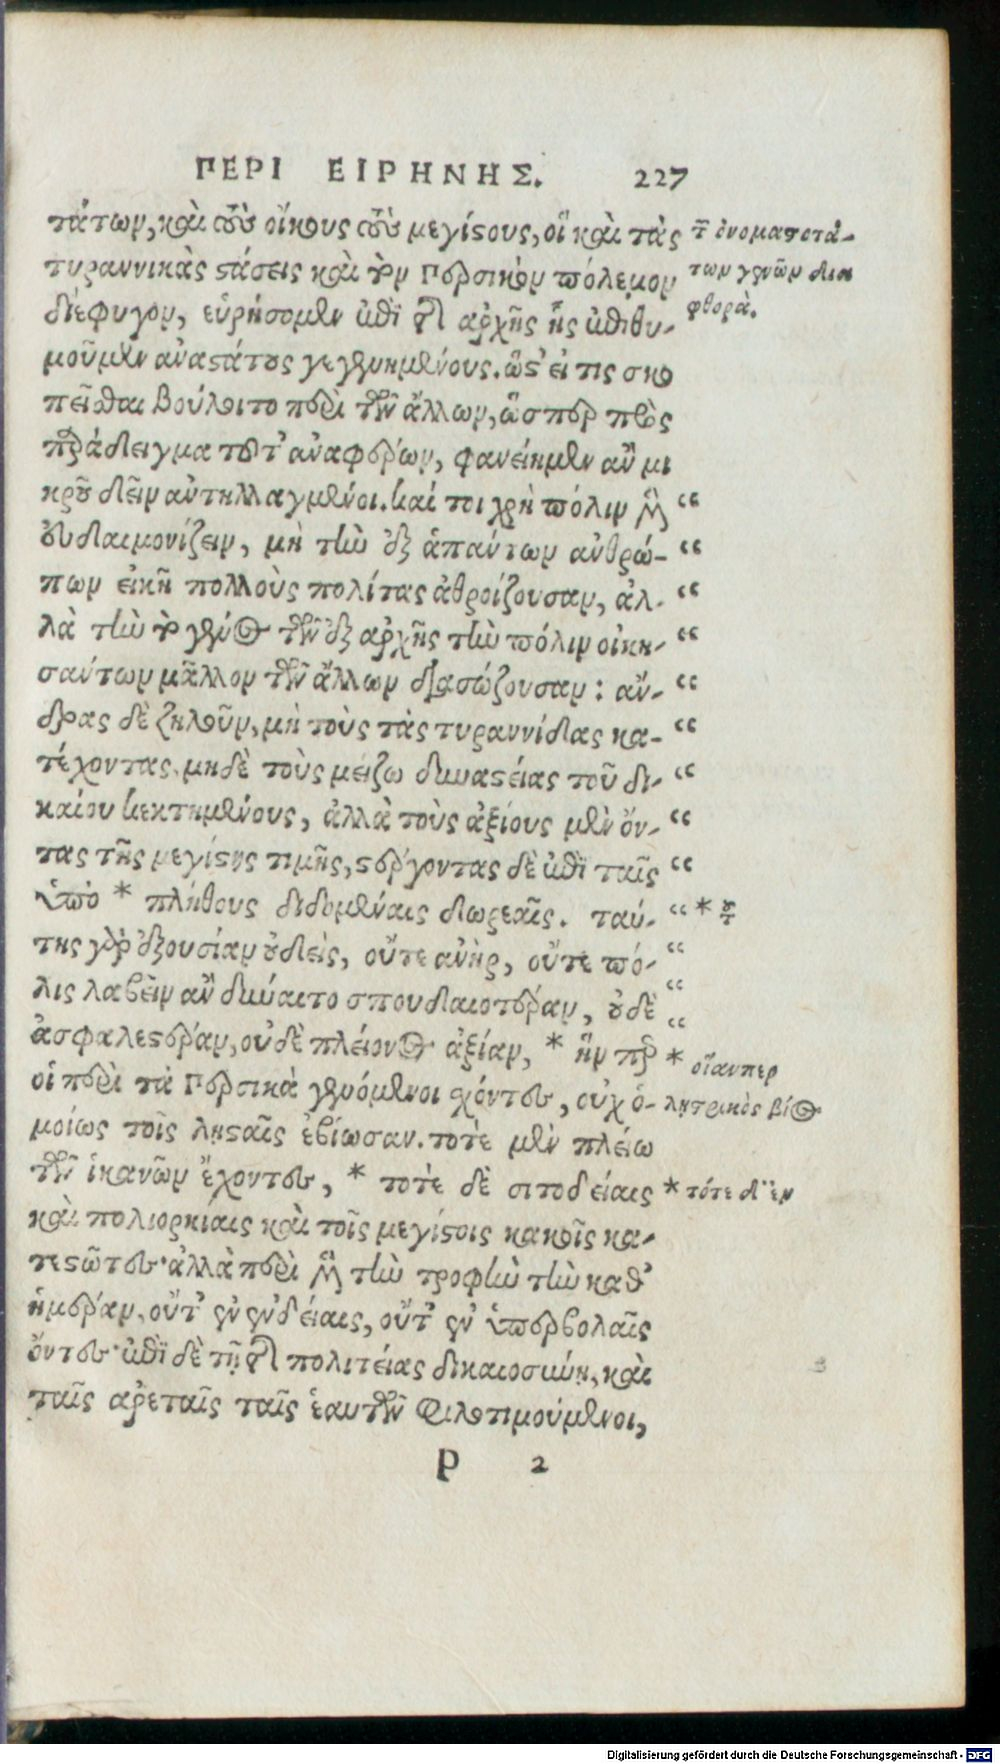 ΠΕΡΙ ΕΙΡΗΝΗΣ. 227
τάτων, καὶ τοὺς οἴκους τοὺς μεγίστους, οἳ καὶ τὰς
τυραννικὰς στάσεις καὶ τὸν Περσικὸν πόλεμον
διέφυγον, εὑρήσομεν ἐπὶ τῆς ἀρχῆς ἧς ἐπιθυ-
μοῦμεν ἀναστάτους γεγενημένους. ὥστ' εἴ τις σκο
πεῖσθαι βούλοιτο περὶ τῶν ἄλλων, ὥσπερ πρὸς
παράδειγμα τοῦτ' ἀναφέρων, φανείημεν ἂν μι
κροῦ δεῖν ἀντηλλαγμένοι. καί τοι χρὴ πόλιν μὲν “
εὐδαιμονίζειν, μὴ τὴν ἐξ ἁπάντων ἀνθρώ- “
πων εἰκῆ πολλοὺς πολίτας ἀθροίζουσαν, ἀλ- “
λὰ τὴν τὸ γένος τῶν ἐξ ἀρχῆς τὴν πόλιν οἰκη- “
σάντων μᾶλλον τῶν ἄλλων διασώζουσαν: ἄν- “
δρας δὲ ζηλοῦν, μὴ τοὺς τὰς τυραννίδας κα- “
τέχοντας, μηδὲ τοὺς μείζω δυναστείας τοῦ δι- “
καίου κεκτημένους, ἀλλὰ τοὺς ἀξίους μὲν ὄν- “
τας τῆς μεγίστης τιμῆς, στέργοντας δὲ ἐπὶ ταῖς “
ὑπὸ * πλήθους διδομέναις δωρεαῖς. ταύ- “
της γὰρ ἐξουσίαν οὐδεὶς, οὔτε ἀνὴρ, οὔτε πό- “
λις λαβεῖν ἂν δύναιτο σπουδαιοτέραν, οὐδὲ “
ἀσφαλεστέραν, οὐδὲ πλείονος ἀξίαν, * ἣν περ “
οἱ περὶ τὰ Περσικὰ γενόμενοι σχόντες, οὐχ ὁ-
μοίως τοῖς λῃσταῖς ἐβίωσαν. τοτὲ μὲν πλείω
τῶν ἱκανῶν ἔχοντες, * τοτὲ δὲ σιτοδείαις
καὶ πολιορκίαις καὶ τοῖς μεγίστοις κακοῖς κα-
τεστῶτες· ἀλλὰ περὶ μὲν τὴν τροφὴν τὴν καθ'
ἡμέραν, οὔτ' ἐν ἐνδείαις, οὔτ' ἐν ὑπερβολαῖς
ὄντες· ἐπὶ δὲ τῇ τῆς πολιτείας δικαιοσύνῃ, καὶ
ταῖς ἀρεταῖς ταῖς ἑαυτῶν φιλοτιμούμενοι,
Ρ 2
τῶν ὀνομαστοτά-
των γενῶν δια
φθορά.
* τοῦ
* οἵανπερ
λῃστρικὸς βίος
* τότε δ' ἐν
Digitalisierung gefördert durch die Deutsche Forschungsgemeinschaft - DFG